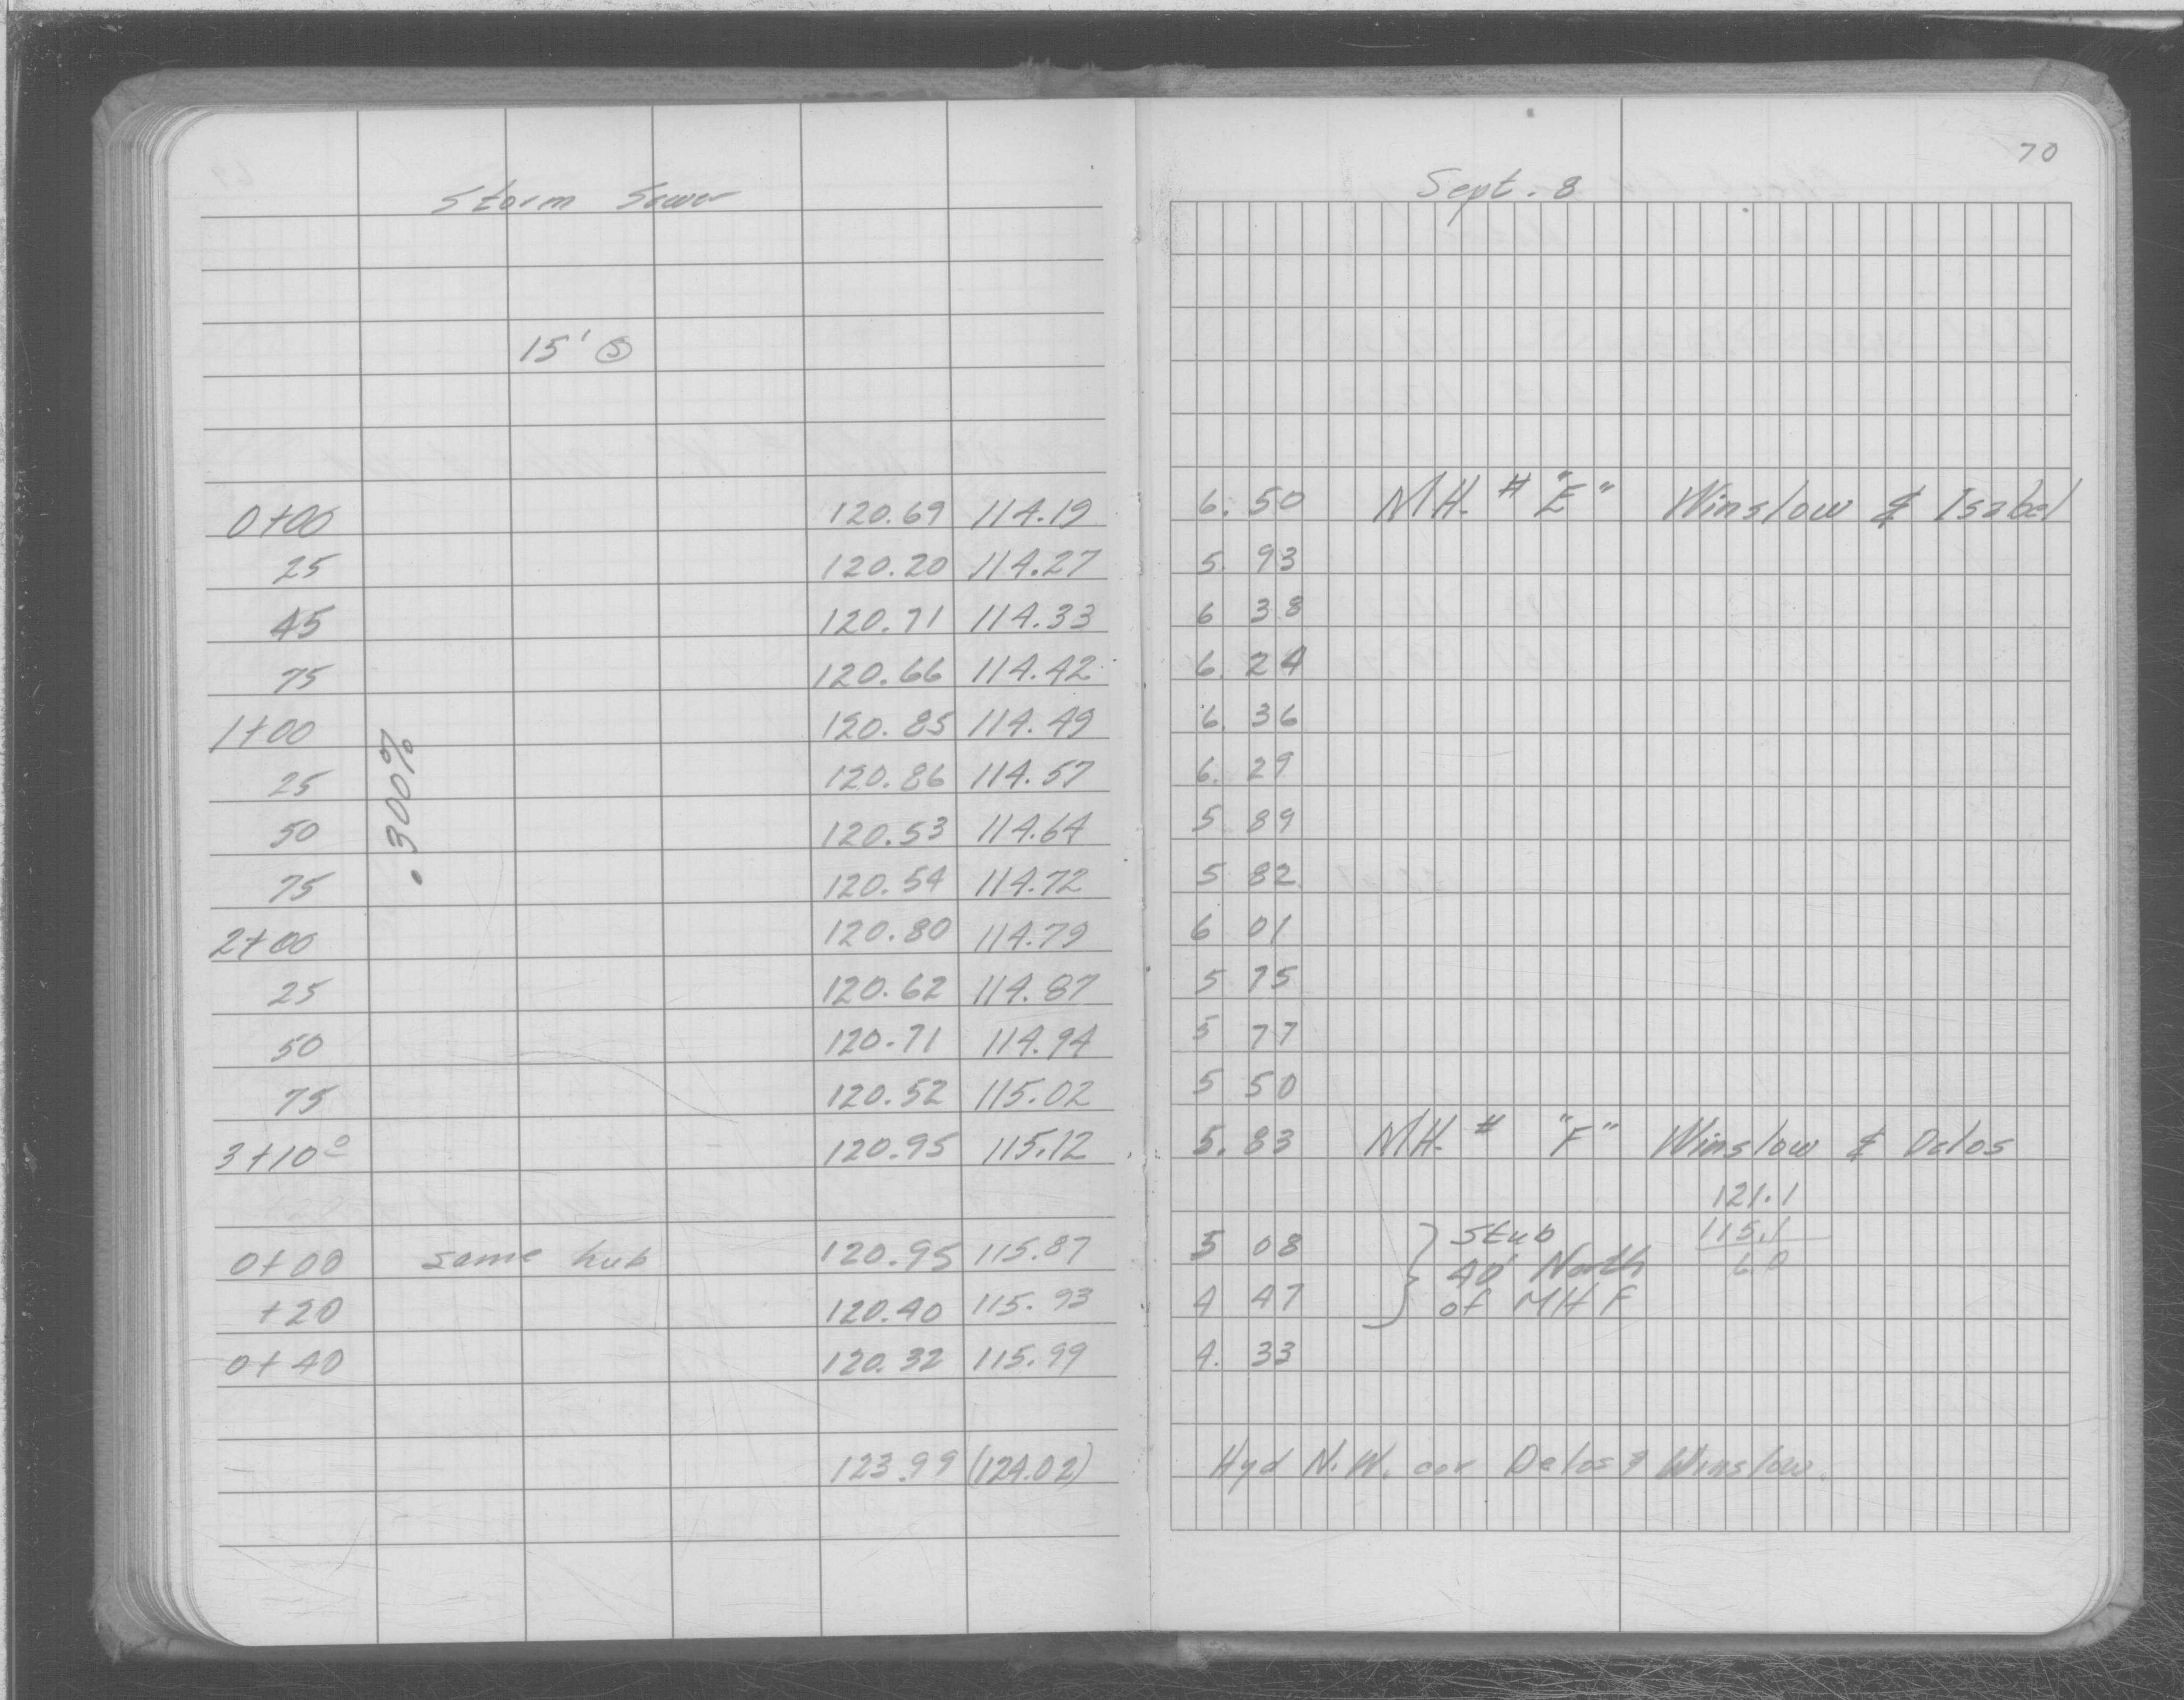 70
Storm Sewer Sept. 8
15' Ⓢ
0+00 120.69 114.19 6.50 MH. # "E" Winslow & Isabel
25 120.20 114.27 5.93
45 120.71 114.33 6 38
75 120.66 114.42 6.24
1+00 120.85 114.49 6.36
.300%
25 120.86 114.57 6.29
50 120.53 114.64 5 89
75 120.54 114.72 5 82
2+00 120.80 114.79 6 01
25 120.62 114.87 5 75
50 120.71 114.94 5 77
75 120.52 115.02 5 50
3+10⁰ 120.95 115.12 5.83 MH. # "F" Winslow & Delos
121.1
0+00 same hub 120.95 115.87 5 08 Stub 115.1
40' North 6.0
+20 120.40 115.93 4 47 of MH F
0+40 120.32 115.99 4.33
123.99 (124.02) Hyd N.W. cor Delos & Winslow.